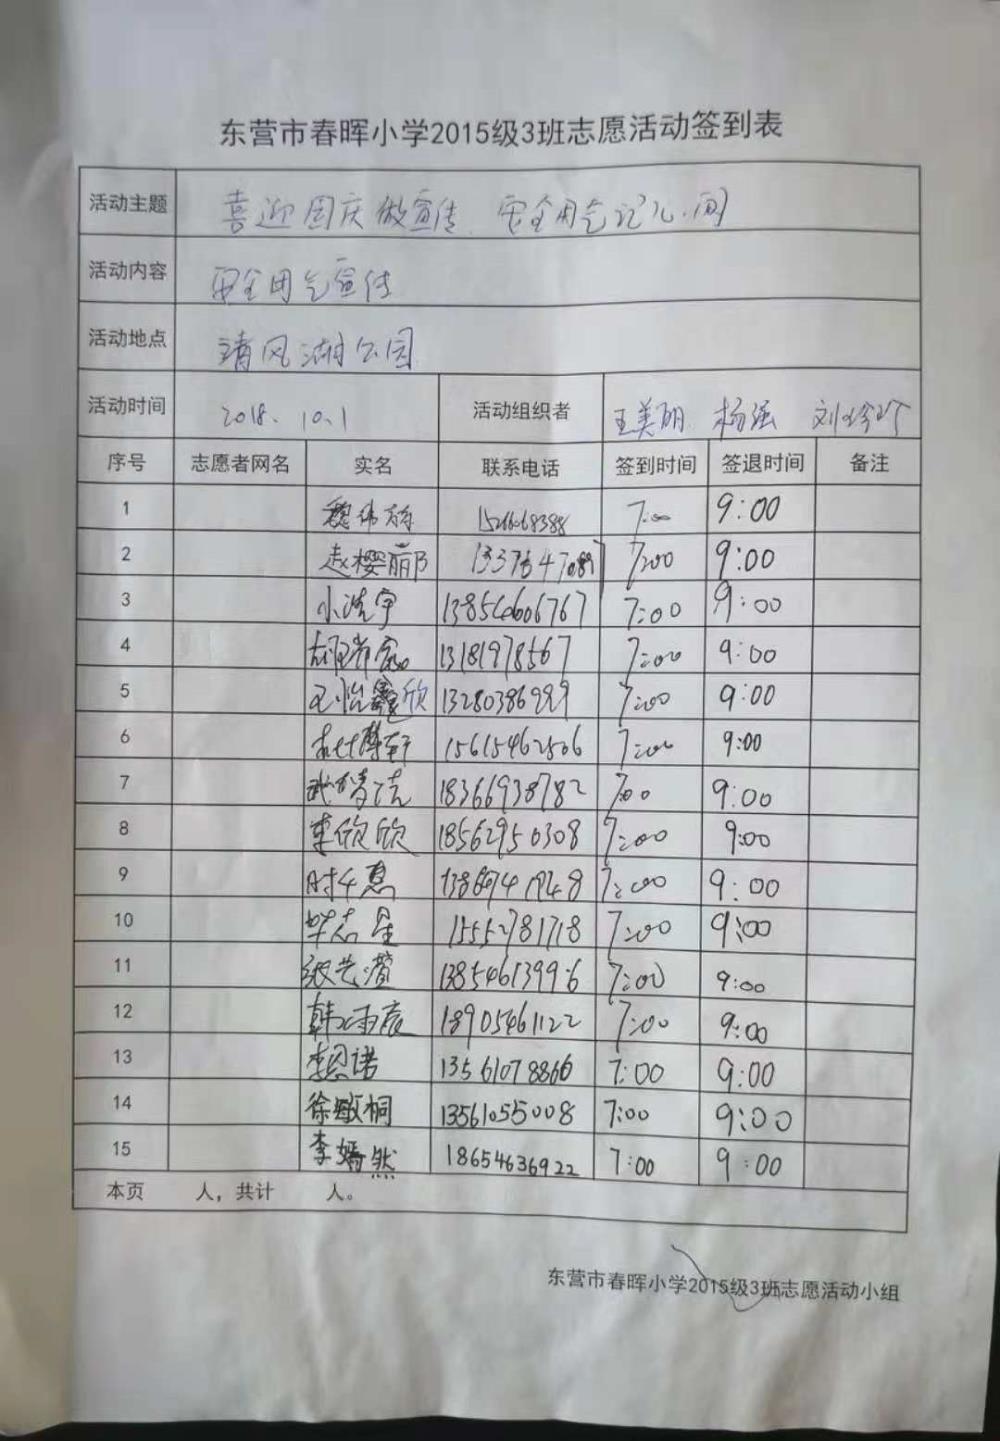 东营市春晖小学2015级3班志愿活动签到表
活动主题 喜迎国庆做宣传 安全用气记心间
活动内容 安全用气宣传
活动地点 清风湖公园
活动时间 2018.10.1 活动组织者 王美丽 杨强
序号 志愿者网名 实名 联系电话 签到时间 签退时间 备注
1 7:00 9:00
2 赵樱丽 7:00 9:00
3 浩宇 13854606767 7:00 9:00
4 13181978567 7:00 9:00
5 王怡鑫欣 13280386999 7:00 9:00
6 15615462506 7:00 9:00
7 18366938782 7:00 9:00
8 李欣欣 18562950308 7:00 9:00
9 时千惠 7:00 9:00
10 毕志星 15552781718 7:00 9:00
11 张艺潆 13854613996 7:00 9:00
12 韩雨辰 18905461122 7:00 9:00
13 李恩诺 13561078866 7:00 9:00
14 徐敏桐 13561055008 7:00 9:00
15 李嫣然 18654636922 7:00 9:00
本页 人，共计 人。
东营市春晖小学2015级3班志愿活动小组